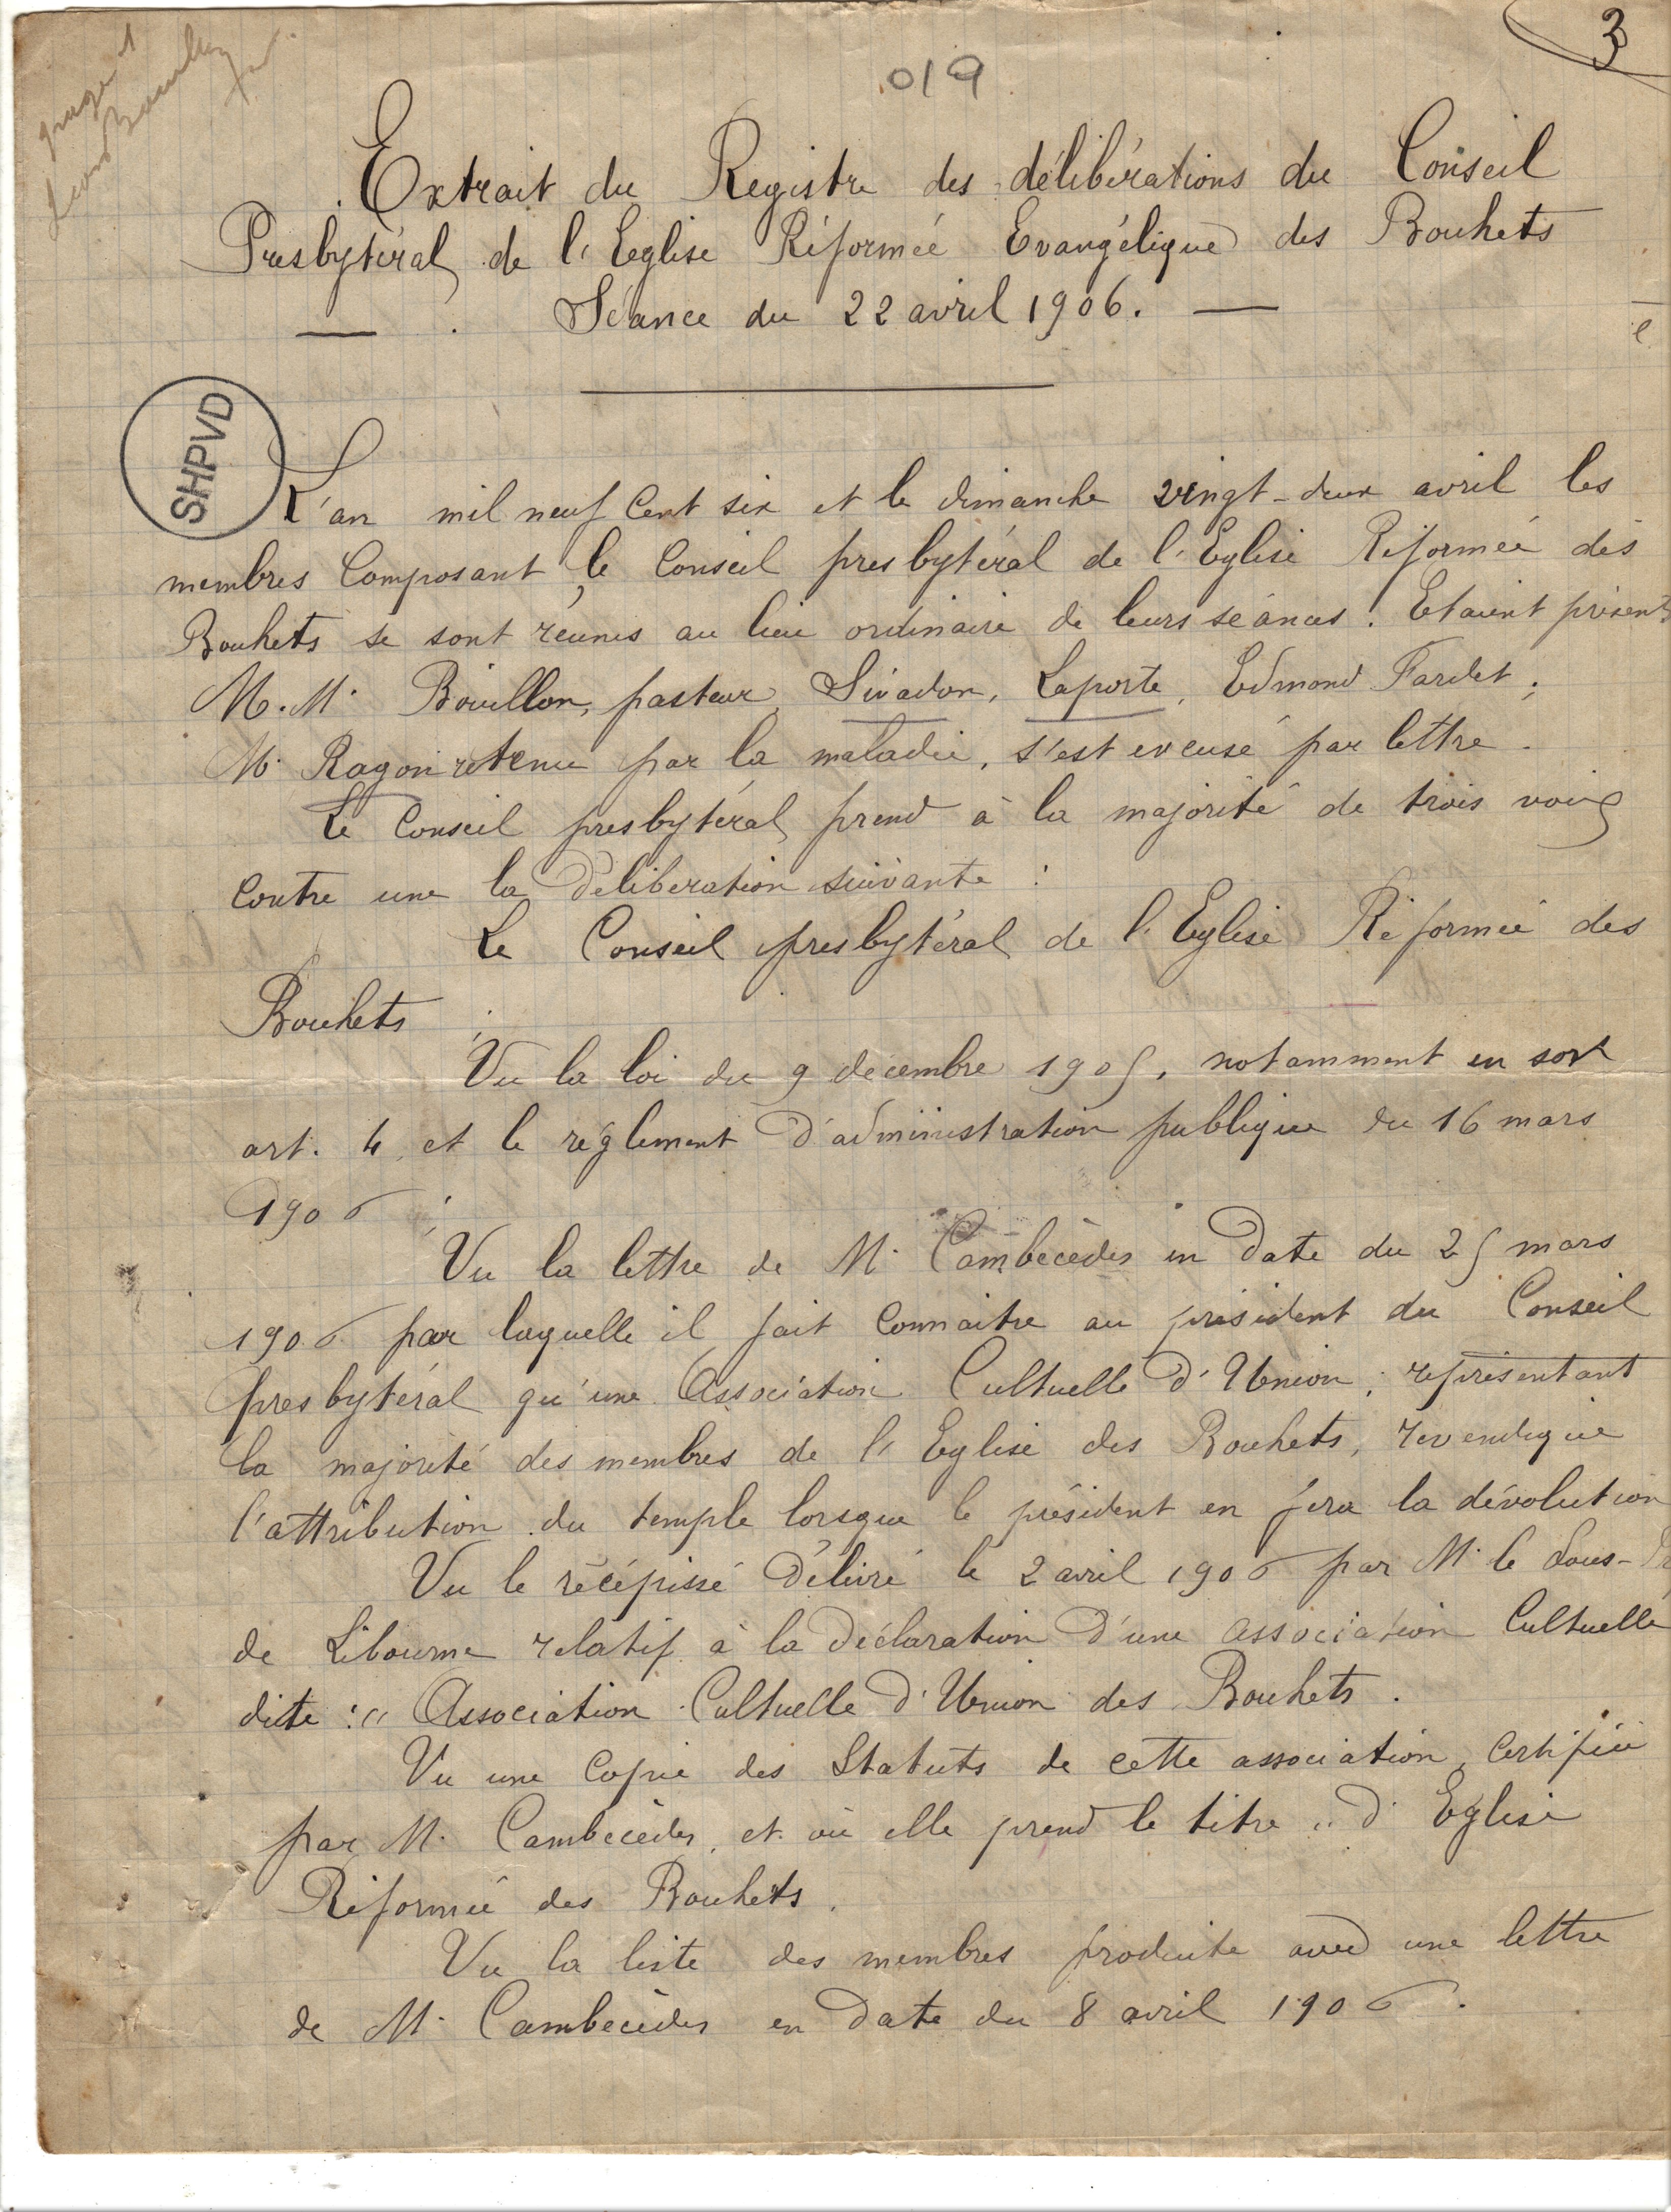 3
019
Extrait du Registre des délibérations du Conseil
Presbytéral de l'Eeglise Réformée Evangélique des Bouhets
— . Séance du 22 avril 1906. —
SHPVD
L'an mil neuf Cent six et le dimanche vingt-deux avril les
membres Composant le Conseil presbytéral de l'Eglise Réformée des
Bouhets se sont réunis au lieu ordinaire de leurs séances. Etaient présents
M.M. Bouillon, pasteur, Sivadon, Laporte, Edmond Fardet;
M. Ragon retenu par la maladie, s'est excusé par lettre.
Le Conseil presbytéral prend à la majorité de trois voix
Contre une la délibération suivante :
Le Conseil presbytéral de l'Eglise Réformée des
Bouhets ;
Vu la loi du 9 décembre 1905, notamment en son
art. 4, et le réglement d'administration publique du 16 mars
1906 ;
Vu la lettre de M. Cambecèdes en date du 25 mars
1906 par laquelle il fait Connaitre au président du Conseil
presbytéral qu'une Association Cultuelle d'Union, représentant
la majorité des membres de l'Eglise des Bouhets, revendique
l'attribution du temple lorsque le président en fera la dévolution
Vu le récépissé délivré le 2 avril 1906 par M. le Sous-
de Libourne relatif à la déclaration d'une association Cultuelle
dite : " Association Cultuelle d'Union des Bouhets.
Vu une Copie des Statuts de cette association, Certifiée
par M. Cambecèdes, et où elle prend le titre " d'Eglise
Réformée des Bouhets.
Vu la liste des membres produite avec une lettre
de M. Cambecèdes en date du 8 avril 1906.